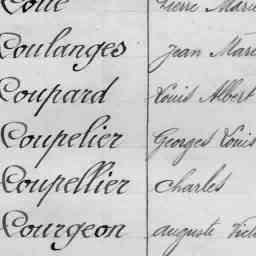 Pierre Marie
Coulanges Jean Mari
Coupard Louis Albert
Coupelier Georges Louis
Coupellier Charles
Courgeon Auguste